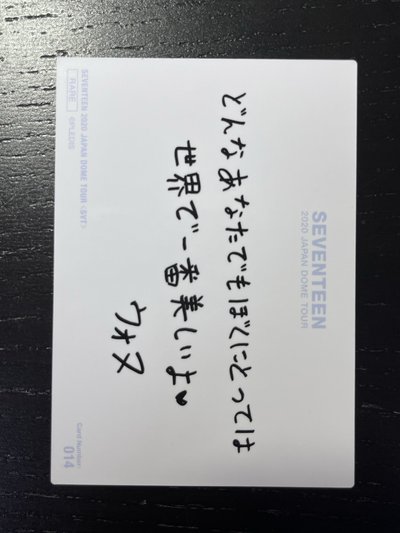 SEVENTEEN
2020 JAPAN DOME TOUR
どんなあなたでもぼくにとっては
世界で一番美しいよ♥
ウォヌ
SEVENTEEN 2020 JAPAN DOME TOUR <SVT>
RARE ©PLEDIS
Card Number
014